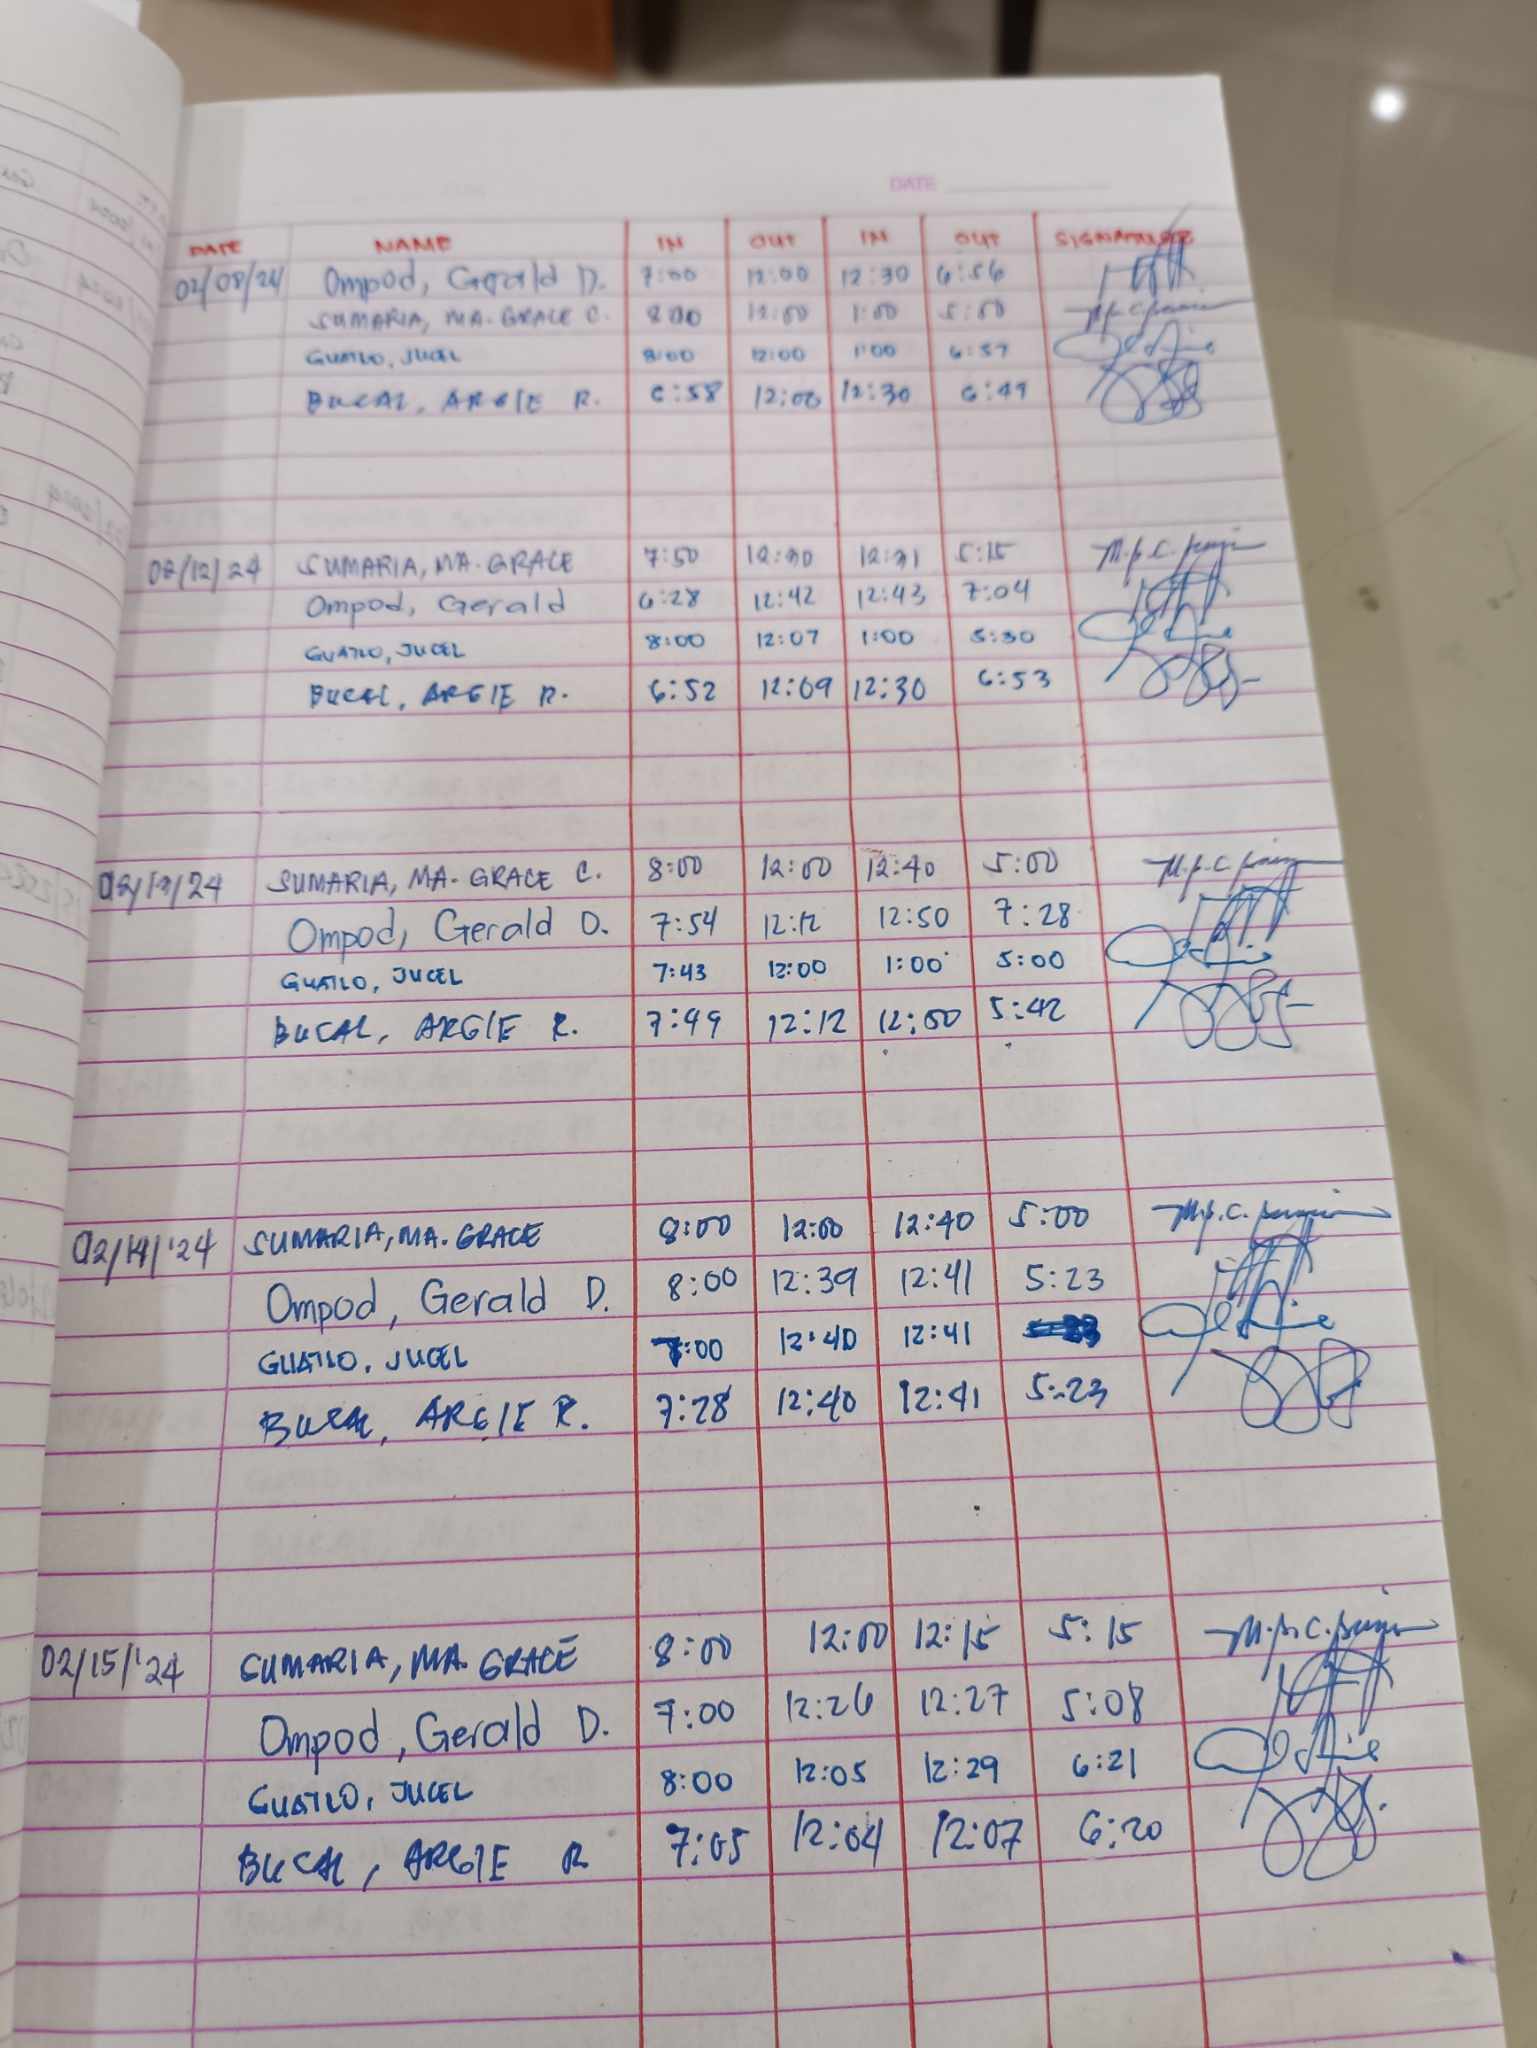 DATE
DATE NAME IN OUT IN OUT SIGNATURE
02/08/24 Ompod, Gerald D. 7:00 12:00 12:30 6:56
SUMARIA, MA. GRACE C. 8:00 12:00 1:00 5:00
GUATLO, JUCEL 8:00 12:00 1:00 6:57
BUCAL, ARGIE R. 6:58 12:00 12:30 6:49
02/12/24 SUMARIA, MA. GRACE 7:50 12:30 12:31 5:15
Ompod, Gerald 6:28 12:42 12:43 7:04
GUATLO, JUCEL 8:00 12:07 1:00 5:30
BUCAL, ARGIE R. 6:52 12:09 12:30 6:53
02/13/24 SUMARIA, MA. GRACE C. 8:00 12:00 12:40 5:00
Ompod, Gerald D. 7:54 12:12 12:50 7:28
GUATLO, JUCEL 7:43 12:00 1:00 5:00
BUCAL, ARGIE R. 7:49 12:12 12:50 5:42
02/14/'24 SUMARIA, MA. GRACE 8:00 12:00 12:40 5:00
Ompod, Gerald D. 8:00 12:39 12:41 5:23
GUATLO, JUCEL 12:40 12:41
BUCAL, ARGIE R. 7:28 12:40 12:41 5:23
02/15/'24 SUMARIA, MA. GRACE 8:00 12:00 12:15 5:15
Ompod, Gerald D. 7:00 12:26 12:27 5:08
GUATLO, JUCEL 8:00 12:05 12:29 6:21
BUCAL, ARGIE R 7:05 12:04 12:07 6:20